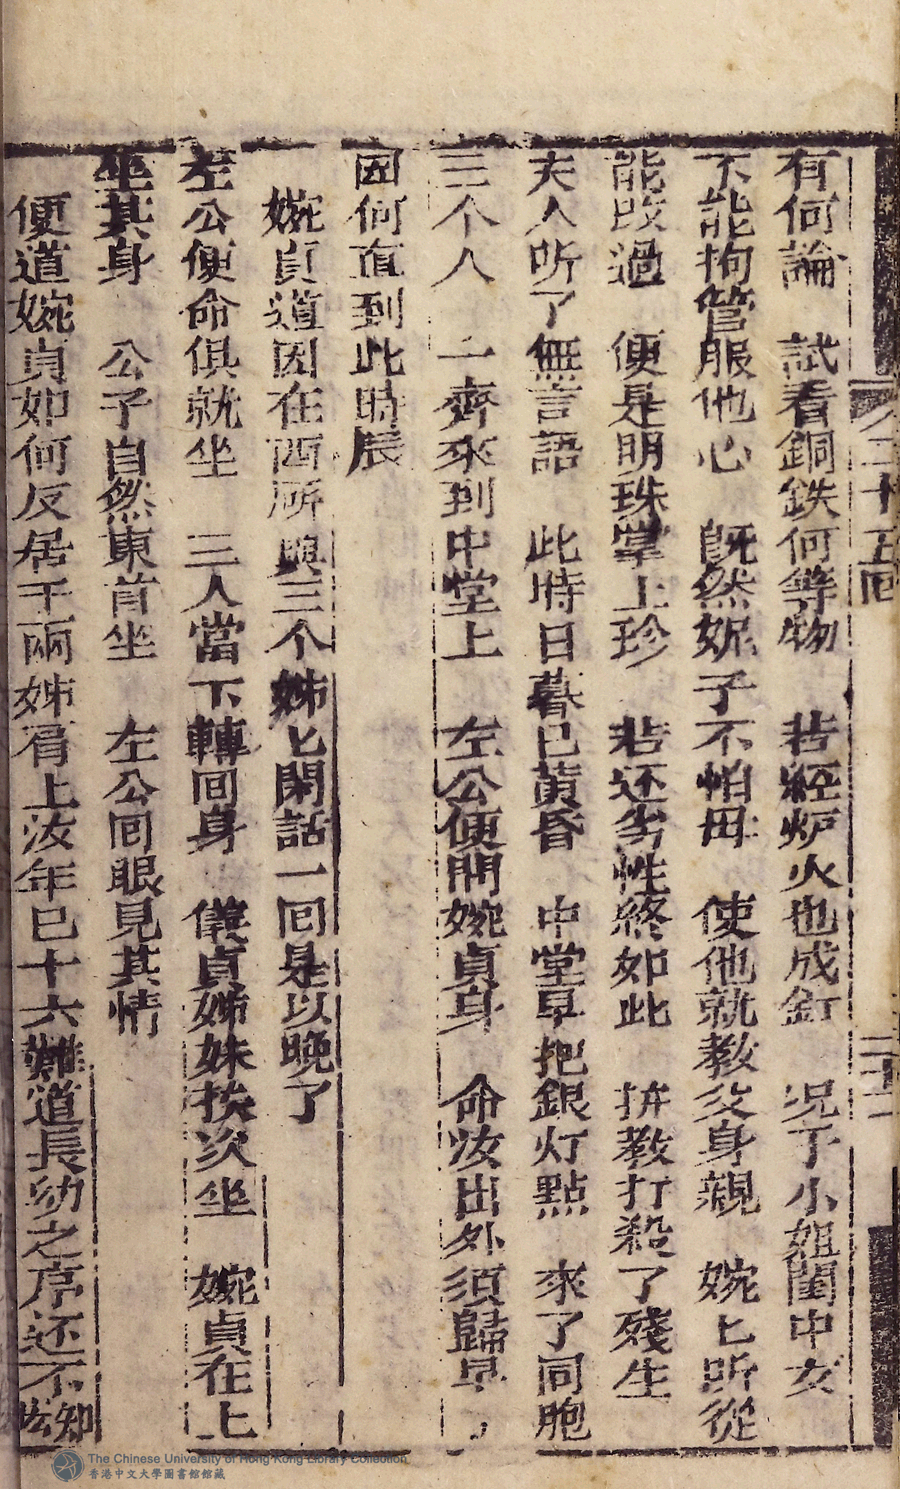 二十五回
二十二
有何論 試看銅鉄何等物 若經炉火也成釘 况于小姐閨中女
不能拘管服他心 既然妮子不怕母 使他就教父身親 婉匕所從
能改過 便是明珠掌上珍 若还劣性終如此 拚教打殺了殘生
夫人听了無言語 此時日暮已黃昏 中堂早把銀灯點 來了同胞
三个人 一齊來到中堂上 左公便問婉貞身 命汝出外須歸早
因何直到此時辰
婉貞道因在西所與三个姊匕閑話一囘是以晚了
左公便命俱就坐 三人當下轉回身 儀貞姊妹挨次坐 婉貞在上
坐其身 公子自然東首坐 左公囘眼見其情
便道婉貞如何反居于兩姊肩上汝年巳十六難道長幼之序还不知
The Chinese University of Hong Kong Library Collection
香港中文大學圖書館館藏